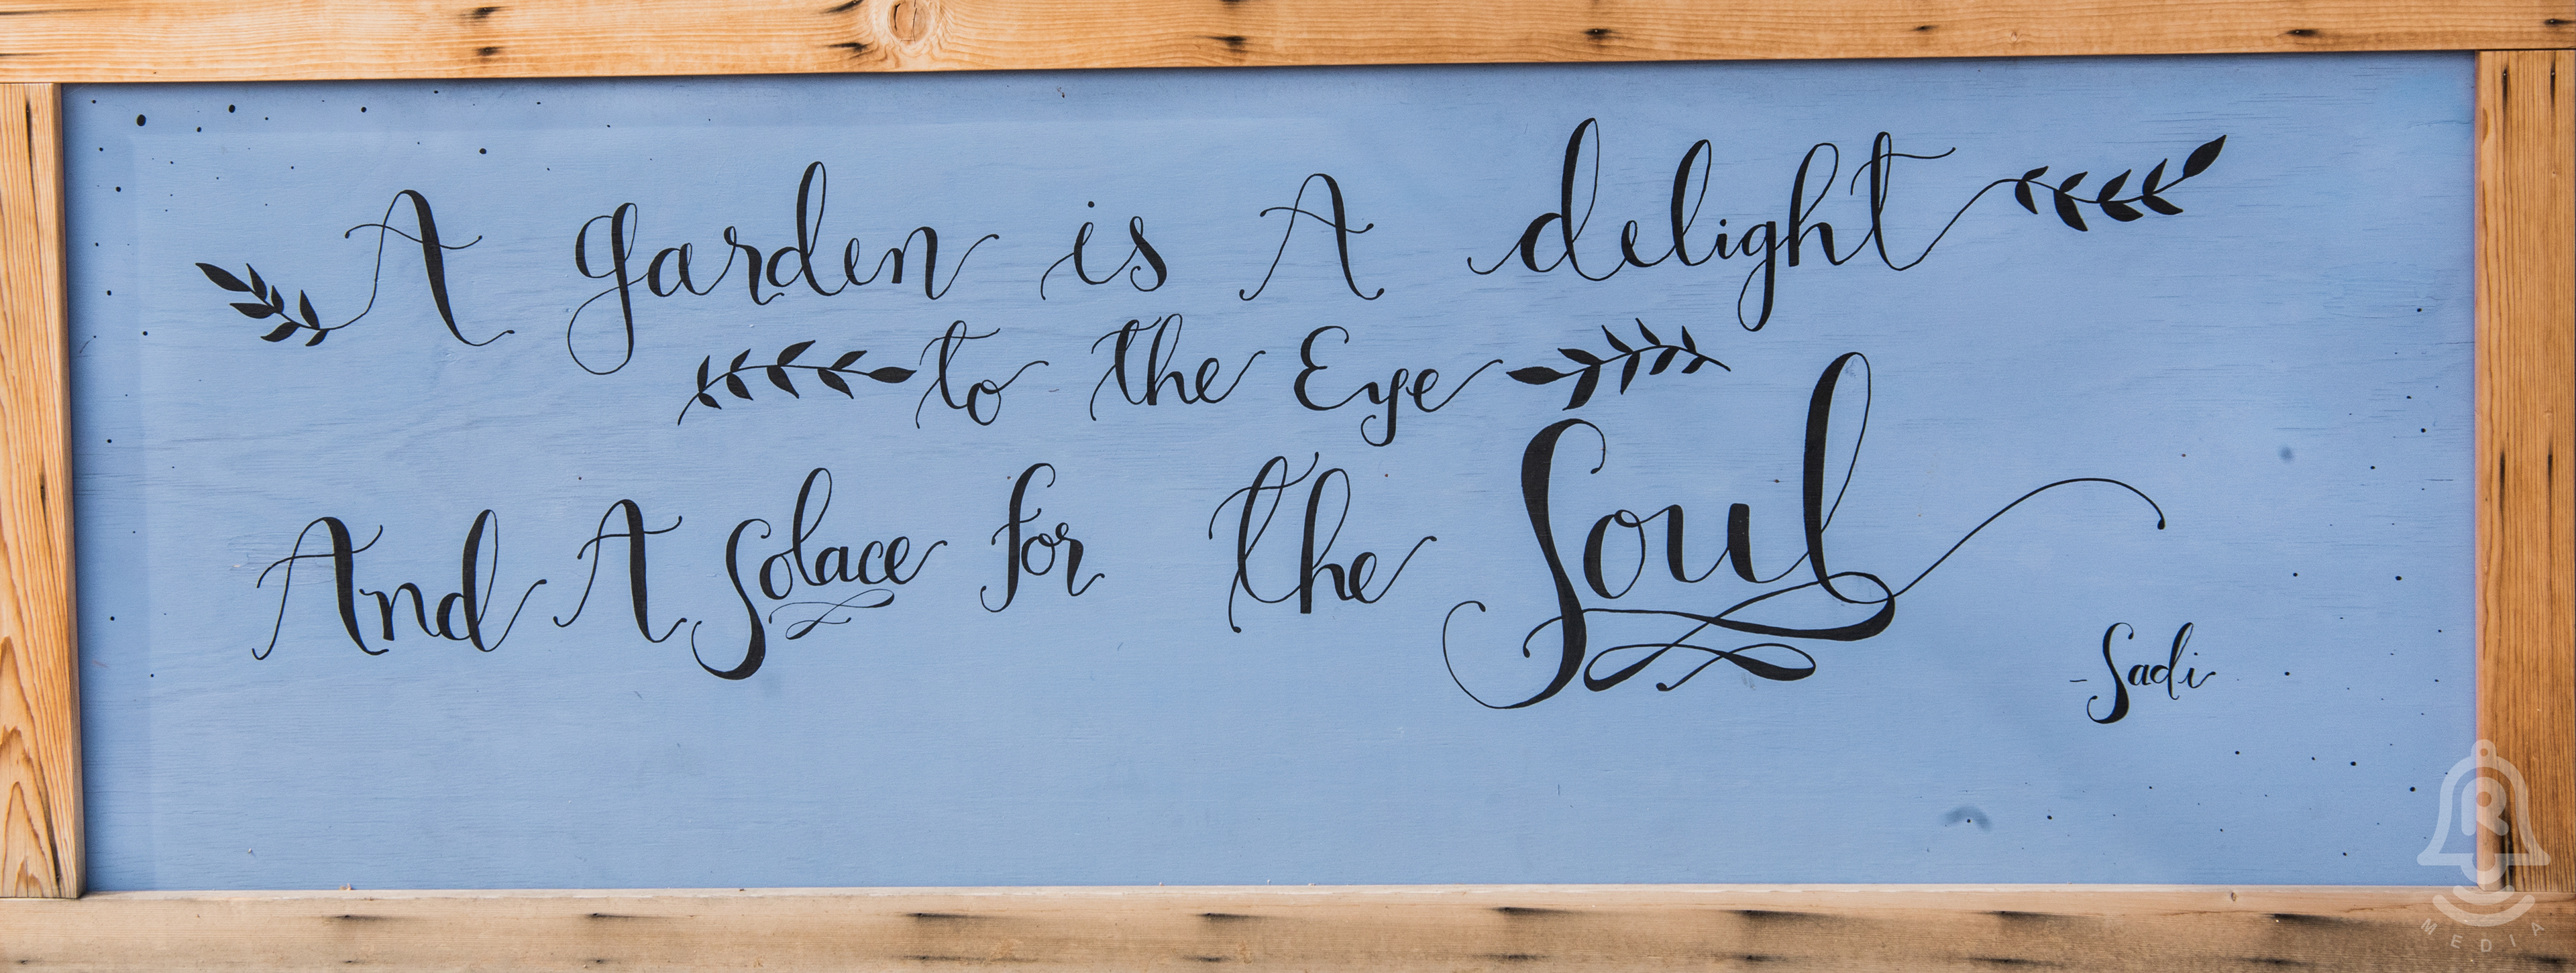 A garden is A delight
to the Eye
And A Solace for the Soul
-Sadi
MEDIA